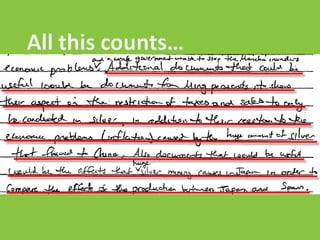 All this counts...
and a weak government unable to stop the Manchu invaders
economic problems. Additional documents that could be
useful would be documents from Ming peasants to show
their aspect on the restriction of taxes and sales to only
be conducted in silver, in addition to their reaction to
economic problems (inflation) caused by the huge amount of silver
that flowed to China. Also documents that would be useful
would be the affects that huge silver mining causes in Japan in order to
compare the effects of the production between Japan and Spain.